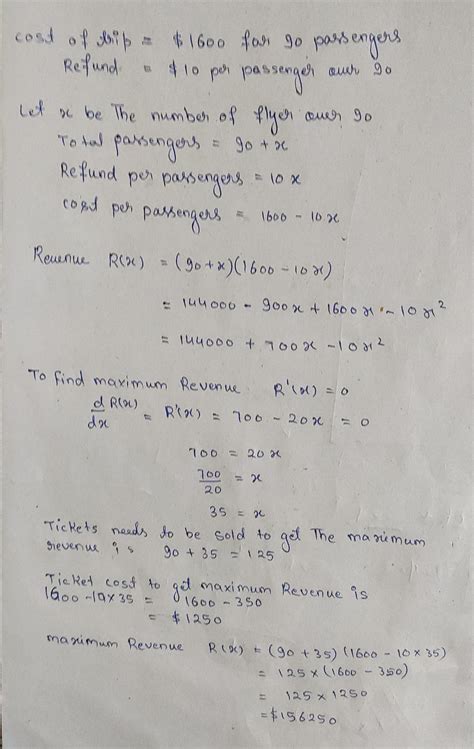 cost of trip = $1600 for 90 passengers
Refund = $10 per passenger over 90
Let x be The number of flyer over 90
Total passengers = 90 + x
Refund per passengers = 10x
cost per passengers = 1600 - 10x
Revenue R(x) = (90+x)(1600 - 10x)
= 144000 - 900x + 1600x - 10x²
= 144000 + 700x - 10x²
To find maximum Revenue R'(x) = 0
d/dx R(x) = R'(x) = 700 - 20x = 0
700 = 20x
700/20 = x
35 = x
Tickets needs to be sold to get The maximum
revenue is 90 + 35 = 125
Ticket cost to get maximum Revenue is
1600 - 10 x 35 = 1600 - 350
= $1250
maximum Revenue R(x) = (90 + 35) (1600 - 10 x 35)
= 125 x (1600 - 350)
= 125 x 1250
= $156250